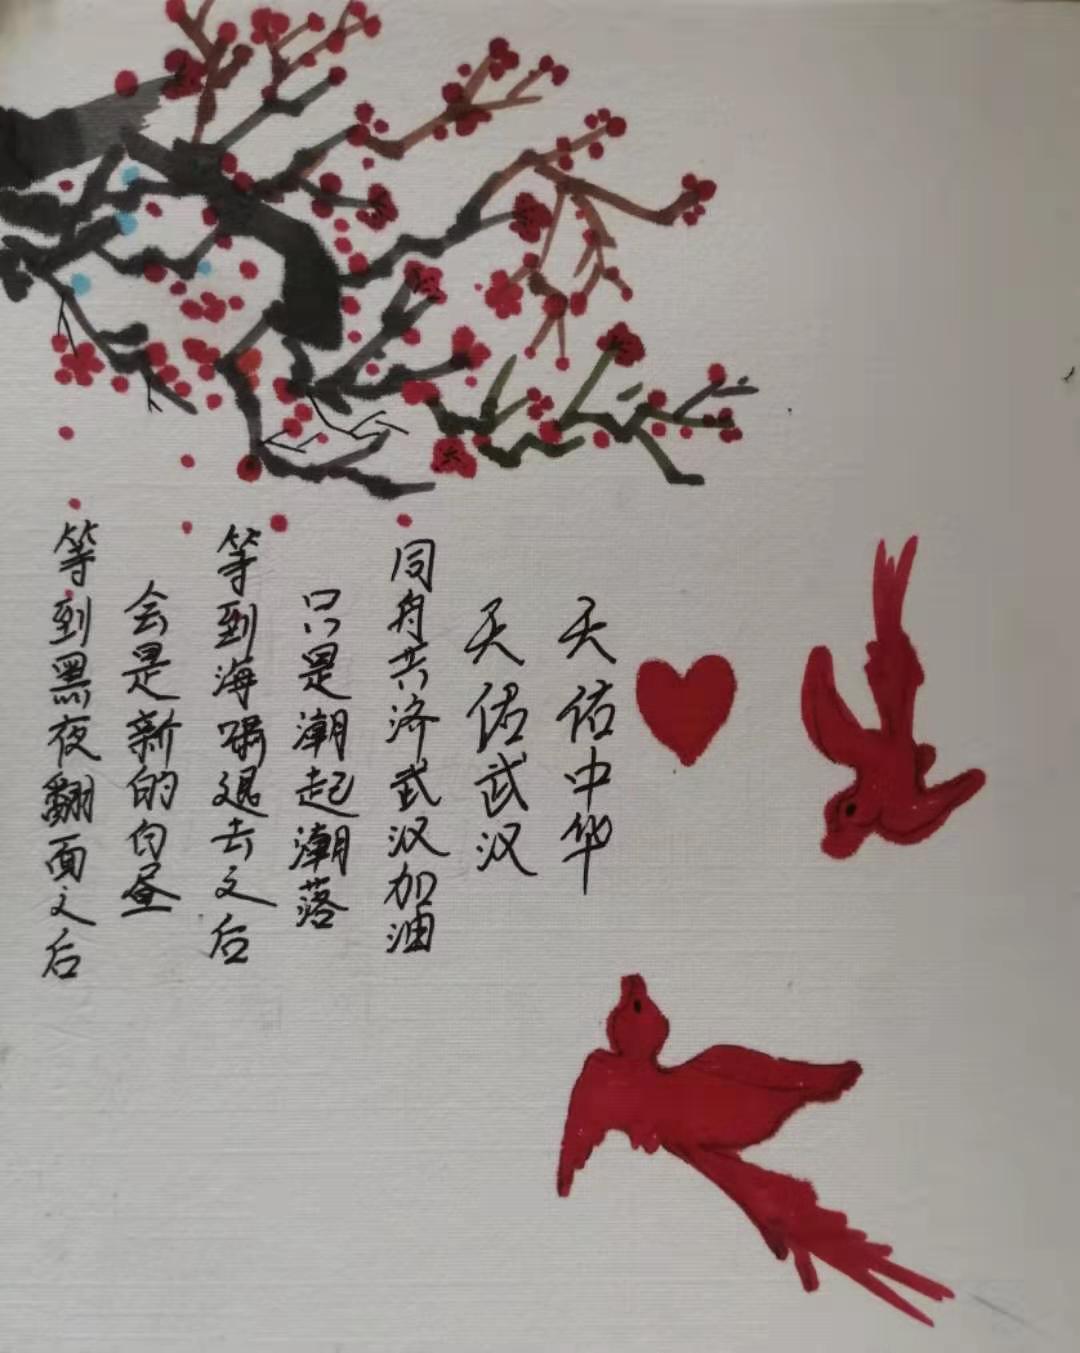 等到黑夜翻面之后
会是新的白昼
等到海啸退去之后
只是潮起潮落
同舟共济武汉加油
天佑武汉
天佑中华